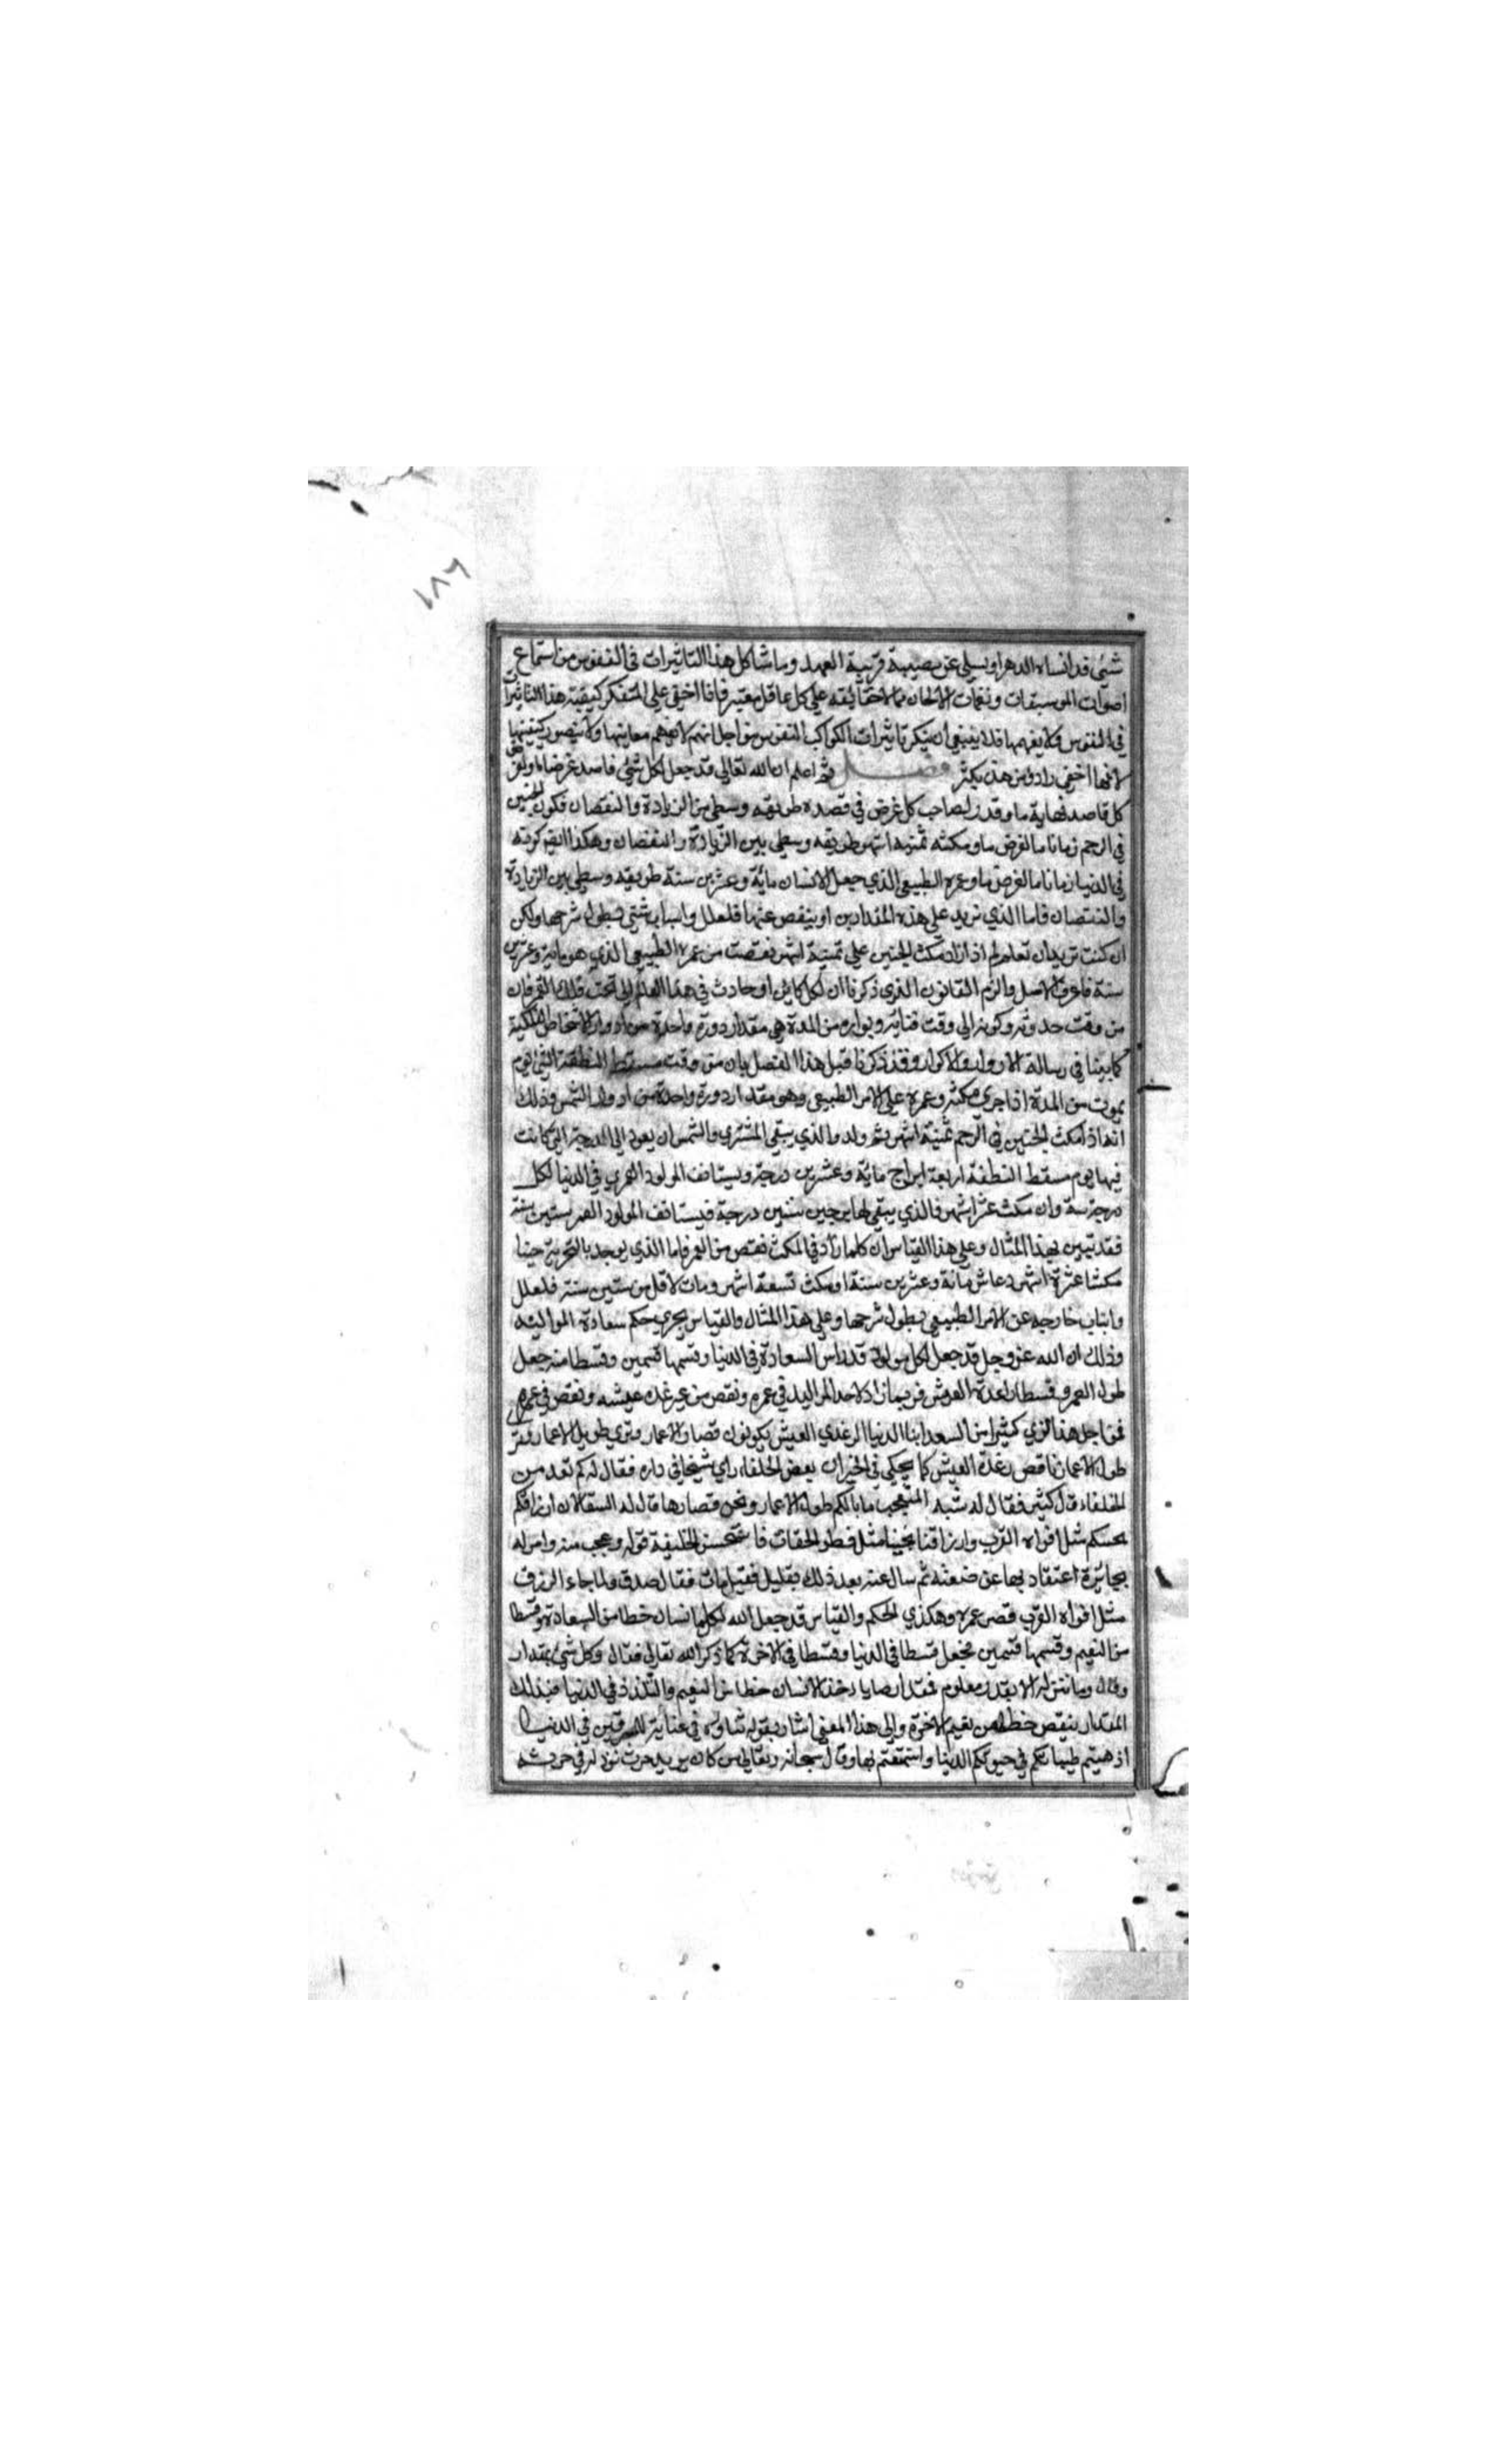 ١٨٦
شيئ قد انساه الدهر او يسلي عن مصيبة قريبة العهد وما شاكل هذا التاثيرات في النفوس من استماع
اصوات الموسيقات ونغمات الالحان مما لاخفا يقه علي كل عاقل معتبر فاذا اخفي علي المتفكر كيفية هذا التاثيرات
في النفوس فلا يفهمها فلا ينبغي ان ينكر تاثيرات الكواكب النفوس من اجل انهم لا يفهم معاينها ولا يتصور كيفيتها
لانها اخفي وادق من هذن بكثر فصل ثم اعلم ان الله تعالي قد جعل لكل شيئ فاسد غرضا ما ولغرض
كل قاصد نهاية ما وقدر لصاحب كل غرض في قصده طريقه وسطي من الزيادة والنقصان فكون الجنين
في الرحم زمانا ما لغرض ما ومكثه ثمنيه اشهر طريقه وسطي بين الزيادة والنقصان وهكذا
في الدنيا زمانا ما لغرض ما وعمره الطبيعي الذي جعل الانسان مائة وعشرين سنة طريقه وسطي بين الزيادة
والنقصان فاما الذي نريد علي هذه المقدارين او ينقص عنها فلعلل واسباب شتي يطول شرحها ولكن
ان كنت تريد ان تعلم لم اذا زاد مكث الجنين علي ثمنية اشهر نقصت من عمره الطبيعي الذي هو ماية وعشرين
سنة فاعرف الاصل والزم القانون الذي ذكرنا ان لكل كاين او حادث في هذا العالم الي تحت فلك القمر فان
من وقت حدوثه وكونه الي وقت فنائه وبواره من المدة هي مقدار دورة واحدة من ادوار الاشخاص الفلكية
كما بينا في رسالة الادوار والاكوار وقد ذكرنا قبل هذا الفصل بان من وقت مسقط النطفة الي يوم
يموت من المدة اذا جري مكثه وعمره علي الامر الطبيعي وهو مقدار دورة واحدة من ادوار الشمس وذلك
انه اذا مكث الجنين في الرحم ثمنية اشهر ثم ولد والذي يبقي المشتري والشمس ان يعود الي الدرجة التي كانت
فيها يوم مسقط النطفة اربعة ابراج ماية وعشرين درجة ويستانف المولود العمر في الدنيا لكل
درجة سنة وان مكث عشر اشهر فالذي يبقي لها برجين ستين درجة فيستانف المولود العمر ستين سنة
فقد تبين بهذا المثال وعلي هذا القياس ان كلما زاد في المكث نقص من العمر فاما الذي يوجد بالتجربة جنينا
مكث عشرة اشهر وعاش مائة وعشرين سنة او مكث تسعة اشهر ومات لاقل من ستين سنة فلعلل
واسباب خارجه عن الامر الطبيعي يطول شرحها وعلي هذا المثال والقياس يجري حكم سعادة المواليد
وذلك ان الله عز وجل قد جعل لكل مولود قدرا من السعادة في الدنيا وقسمها قسمين وقسطا منه جعل
طول العمر وقسطا رغدة العيش فربما زاد لاحد المواليد في عمره ونقص من رغده عيشه ونقص في عمره
فمن اجل هذا نري كثيرا من السعد ابنا الدنيا الرغدي العيش يكونون قصار الاعمار ونري طويل الاعمار
طول الاعمار ناقص رغدة العيش كما يحكي في الخبر ان بعض الخلفاء راي شيخا في داره فقال له كم تعد من
الخلفاء قال كثير فقال له شبه المتعجب ما بالكم طول الاعمار ونحن قصارها قال له السقا لان ارزاقكم
مثل افواه القرب وارزاقنا مثل قطر فاستحسن الخليفة قوله وعجب منه وامر له
بجائزة اعتقاد بها عن ضعفه ثم سال عنه بعد ذلك بقليل فقيل مات فقال صدق لما جاء الرزق
مثل افواه القرب قصر عمره وهكذي الحكم والقياس قد جعل الله لكل انسان حظا من السعادة وقسطا
من النعيم وقسمها قسمين فجعل قسطا في الدنيا وقسطا في الاخرة كما ذكر الله تعالي فقال وكل شيئ بمقدار
وقال وما ننزله الا بقدر معلوم فمقدار ما ياخذ الانسان حظا من النعيم والتلذذ في الدنيا فبذلك
المقدار ينقص حظا من نعيم الاخرة والي هذا المعني اشار بقوله ثناؤه في عناية للمسرفين في الدنيا
اذهبتم طيباتكم في حيوتكم الدنيا واستمتعتم بها وقال سبحانه وتعالي من كان يريد حرث نزد له في حرثه